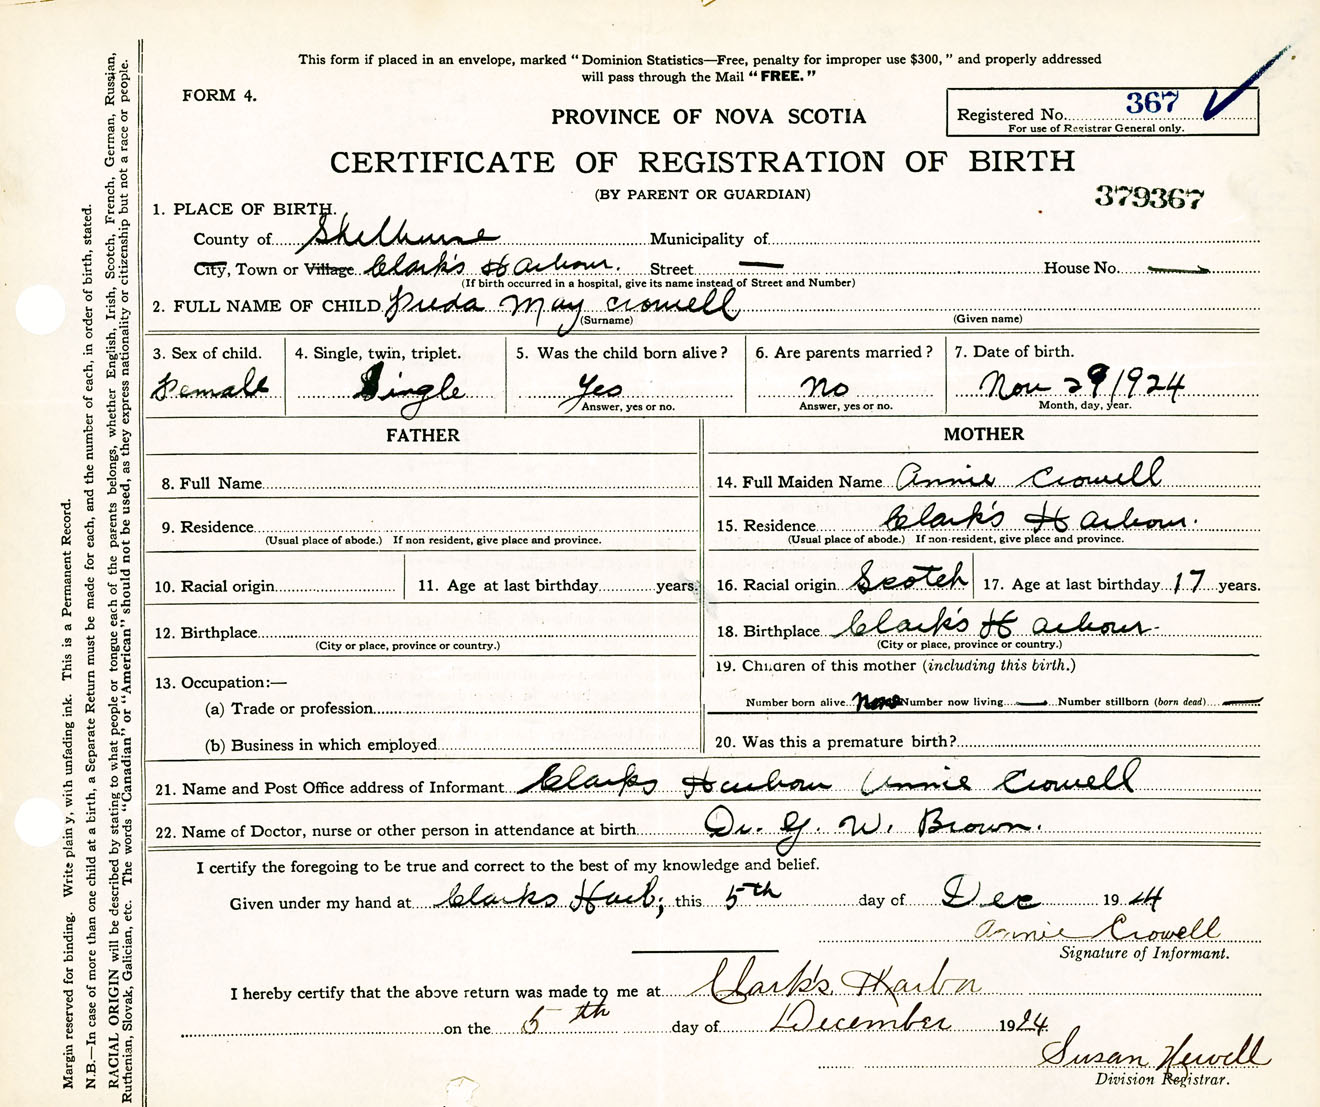 This form if placed in an envelope, marked "Dominion Statistics—Free, penalty for improper use $300," and properly addressed
will pass through the Mail "FREE."
FORM 4.
PROVINCE OF NOVA SCOTIA
Registered No. 367
For use of Registrar General only.
CERTIFICATE OF REGISTRATION OF BIRTH
(BY PARENT OR GUARDIAN)
379367
1. PLACE OF BIRTH.
County of Shelburne Municipality of
City, Town or Village Clark's Harbour. Street — House No. —
(If birth occurred in a hospital, give its name instead of Street and Number)
2. FULL NAME OF CHILD Freda May Crowell
(Surname) (Given name)
3. Sex of child. 4. Single, twin, triplet. 5. Was the child born alive? 6. Are parents married? 7. Date of birth.
Female Single Yes No Nov 29/1924
Answer, yes or no. Answer, yes or no. Month, day, year.
FATHER MOTHER
8. Full Name 14. Full Maiden Name Annie Crowell
9. Residence 15. Residence Clark's Harbour.
(Usual place of abode.) If non resident, give place and province. (Usual place of abode.) If non-resident, give place and province.
10. Racial origin 11. Age at last birthday years. 16. Racial origin Scotch 17. Age at last birthday 17 years.
12. Birthplace 18. Birthplace Clark's Harbour.
(City or place, province or country.) (City or place, province or country.)
13. Occupation:— 19. Children of this mother (including this birth.)
(a) Trade or profession Number born alive None Number now living — Number stillborn (born dead) —
(b) Business in which employed 20. Was this a premature birth?
21. Name and Post Office address of Informant Clarks Harbour Annie Crowell
22. Name of Doctor, nurse or other person in attendance at birth Dr. G. W. Brown.
I certify the foregoing to be true and correct to the best of my knowledge and belief.
Given under my hand at Clarks Harb, this 5th day of Dec 1924
Annie Crowell
Signature of Informant.
I hereby certify that the above return was made to me at Clark's Harbor
on the 5th day of December 1924
Susan Newell
Division Registrar.
Margin reserved for binding. Write plainly, with unfading ink. This is a Permanent Record.
N.B.—In case of more than one child at a birth, a Separate Return must be made for each, and the number of each, in order of birth, stated.
RACIAL ORIGIN will be described by stating to what people or tongue each of the parents belongs, whether English, Irish, Scotch, French, German, Russian,
Ruthenian, Slovak, Galician, etc. The words "Canadian" or "American" should not be used, as they express nationality or citizenship but not a race or people.